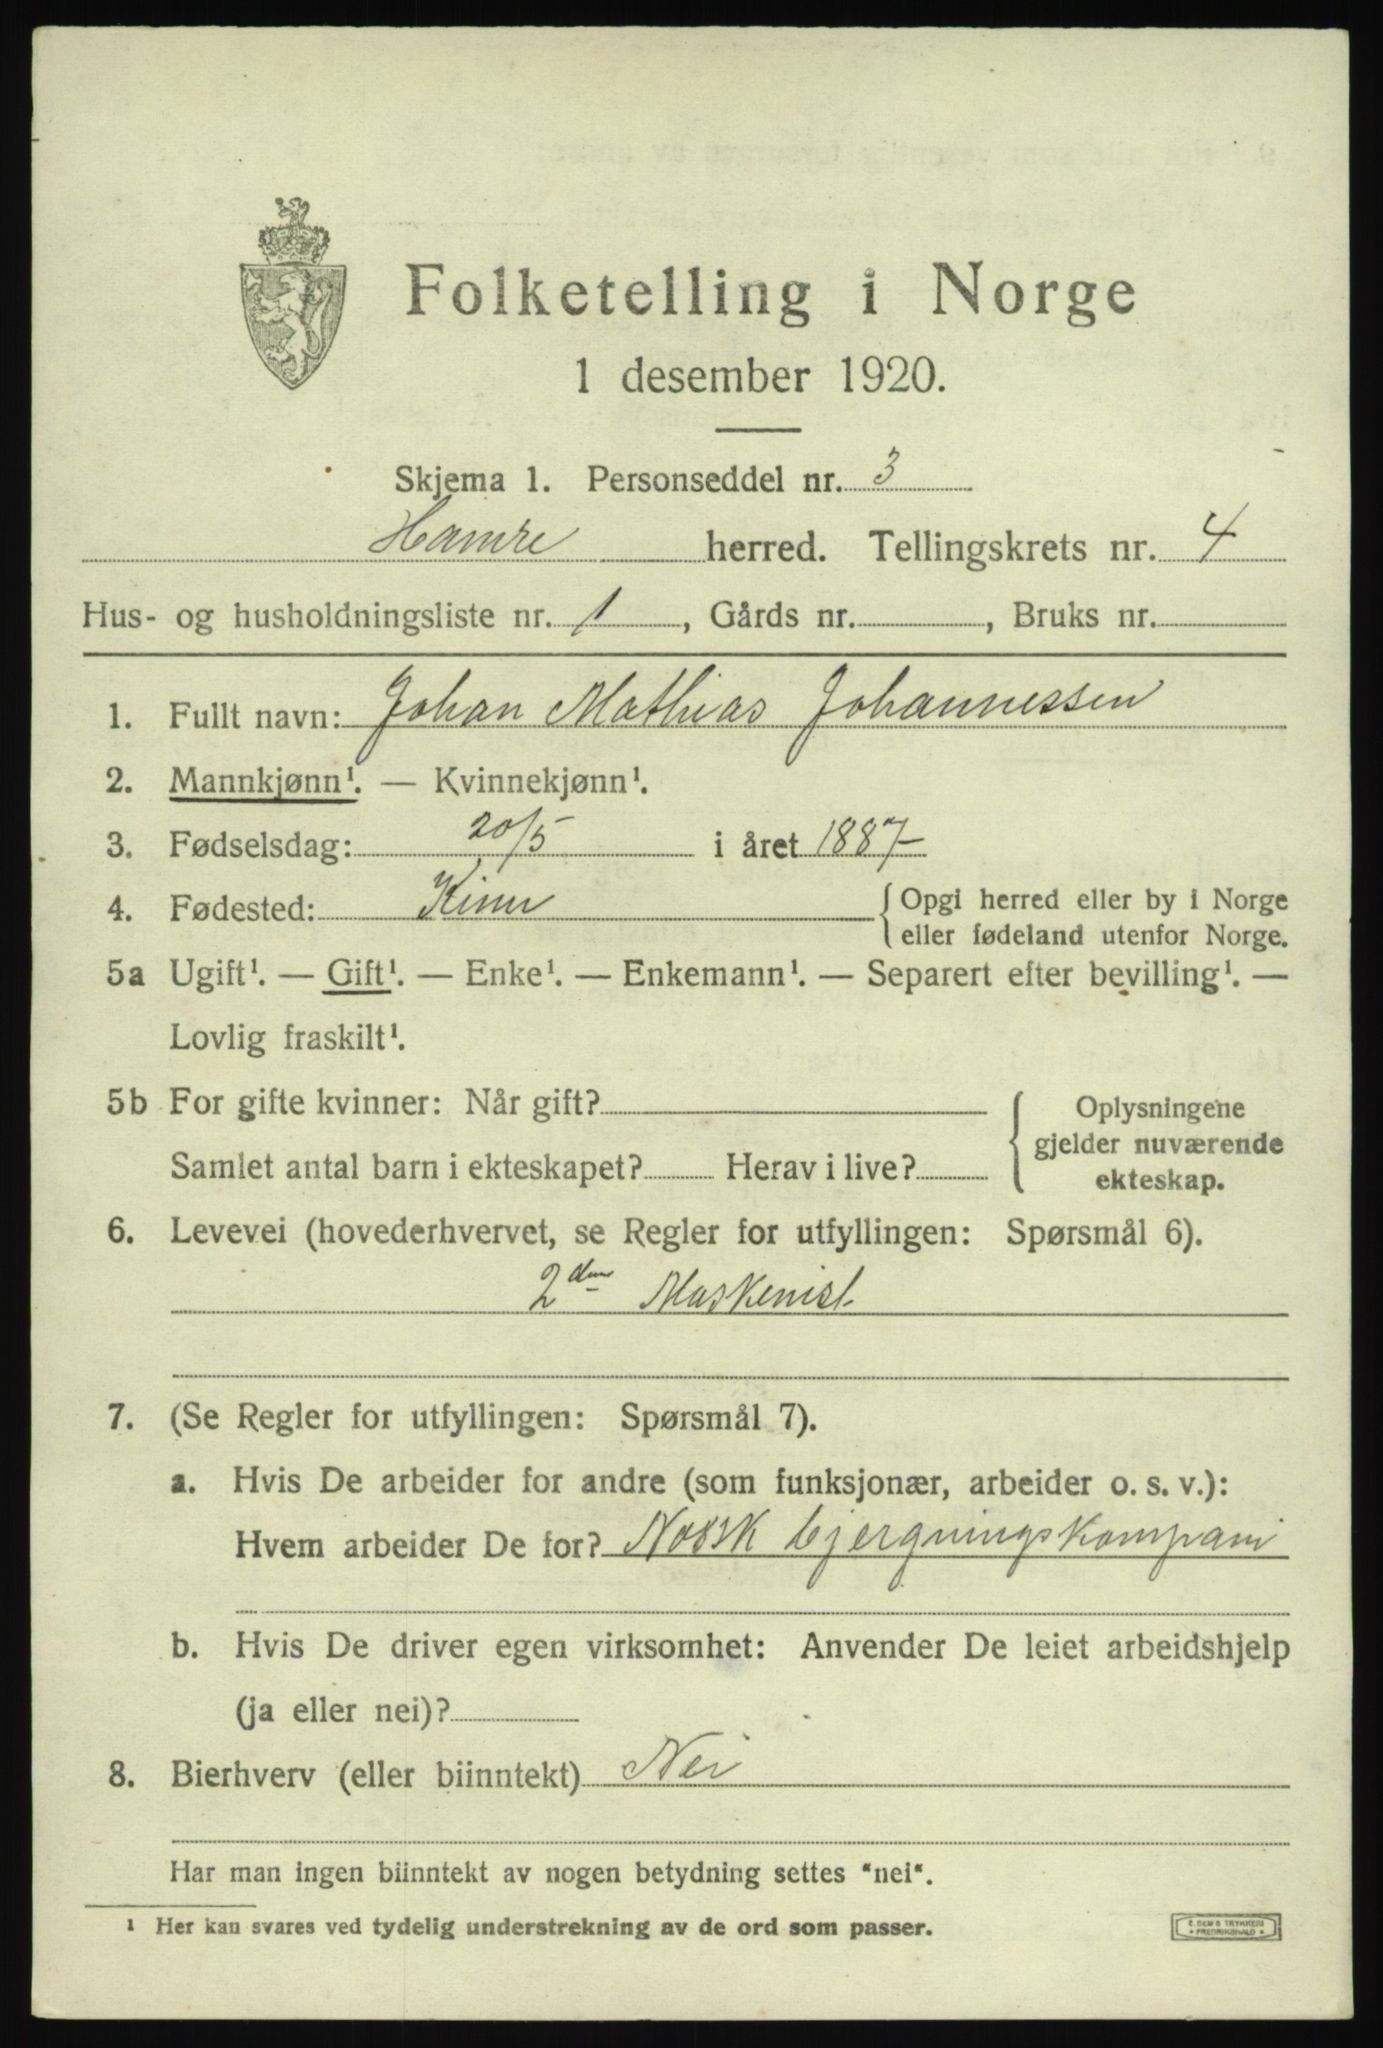 Folketelling i Norge
1 desember 1920.
Skjema 1. Personseddel nr. 3
Hamre herred. Tellingskrets nr. 4
Hus- og husholdningsliste nr. 1, Gårds nr. , Bruks nr.
1. Fullt navn: Johan Mathias Johannessen
2. Mannkjønn¹. — Kvinnekjønn¹.
3. Fødselsdag: 20/5 i året 1887
4. Fødested: Kinn {Opgi herred eller by i Norge
eller fødeland utenfor Norge.
5a Ugift¹. — Gift¹. — Enke¹. — Enkemann¹. — Separert efter bevilling¹. —
Lovlig fraskilt¹.
5b For gifte kvinner: Når gift?
Samlet antal barn i ekteskapet? Herav i live?
{ Oplysningene
gjelder nuværende
ekteskap.
6. Levevei (hovederhvervet, se Regler for utfyllingen: Spørsmål 6).
2den Maskenist
7. (Se Regler for utfyllingen: Spørsmål 7).
a. Hvis De arbeider for andre (som funksjonær, arbeider o. s. v.):
Hvem arbeider De for? Norsk bjergningskompani
b. Hvis De driver egen virksomhet: Anvender De leiet arbeidshjelp
(ja eller nei)?
8. Bierhverv (eller biinntekt) Nei
Har man ingen biinntekt av nogen betydning settes "nei".
¹ Her kan svares ved tydelig understrekning av de ord som passer.
E. SEM'S TRYKKERI
* FREDRIKSHALD *